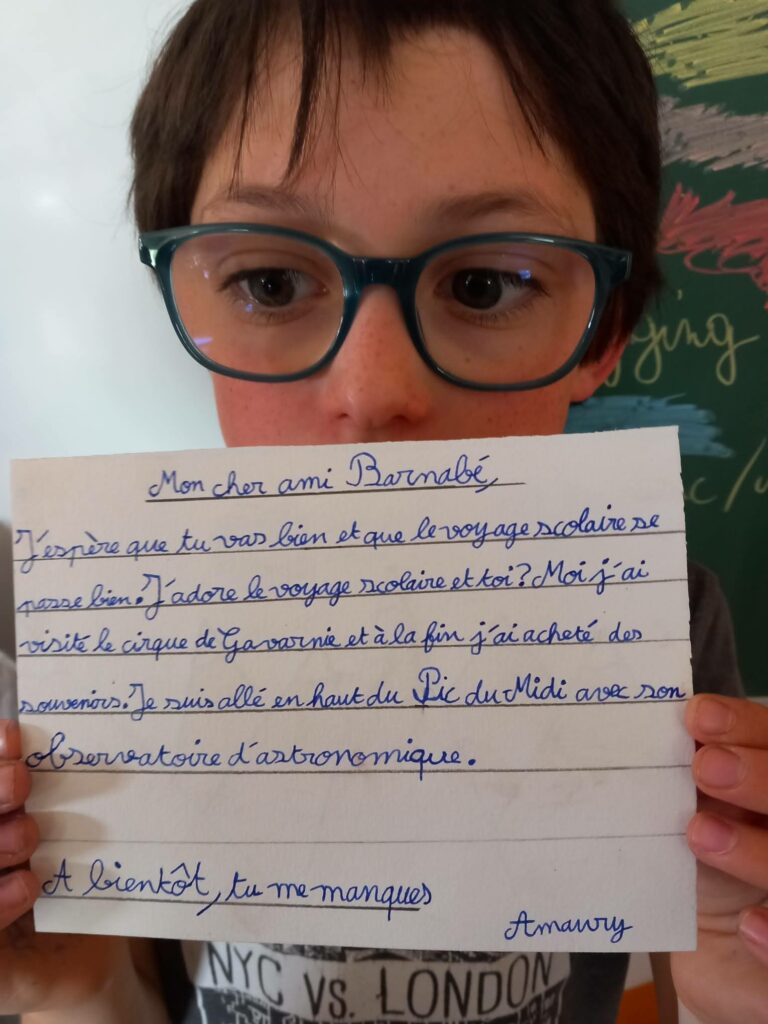 Mon cher ami Barnabé,
J'espère que tu vas bien et que le voyage scolaire se
passe bien. J'adore le voyage scolaire et toi? Moi j'ai
visité le cirque de Gavarnie et à la fin j'ai acheté des
souvenirs. Je suis allé en haut du Pic du Midi avec son
observatoire d'astronomique.
A bientôt, tu me manques
Amaury
NYC VS. LONDON